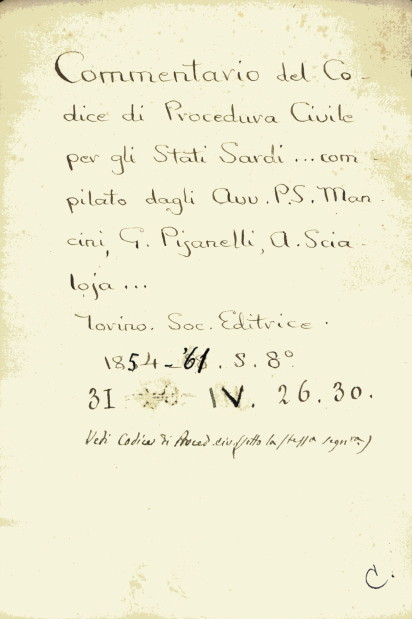 Commentario del Co-
dice di Procedura Civile
per gli Stati Sardi ... com-
pilato dagli Avv. P.S. Man-
cini, G. Pisanelli, A. Scia-
loja ...
Torino. Soc. Editrice.
1854-'61. S. 8°
31 IV. 26. 30.
Vedi Codice di Proced. civ. (sotto la stessa segn.ra)
C.